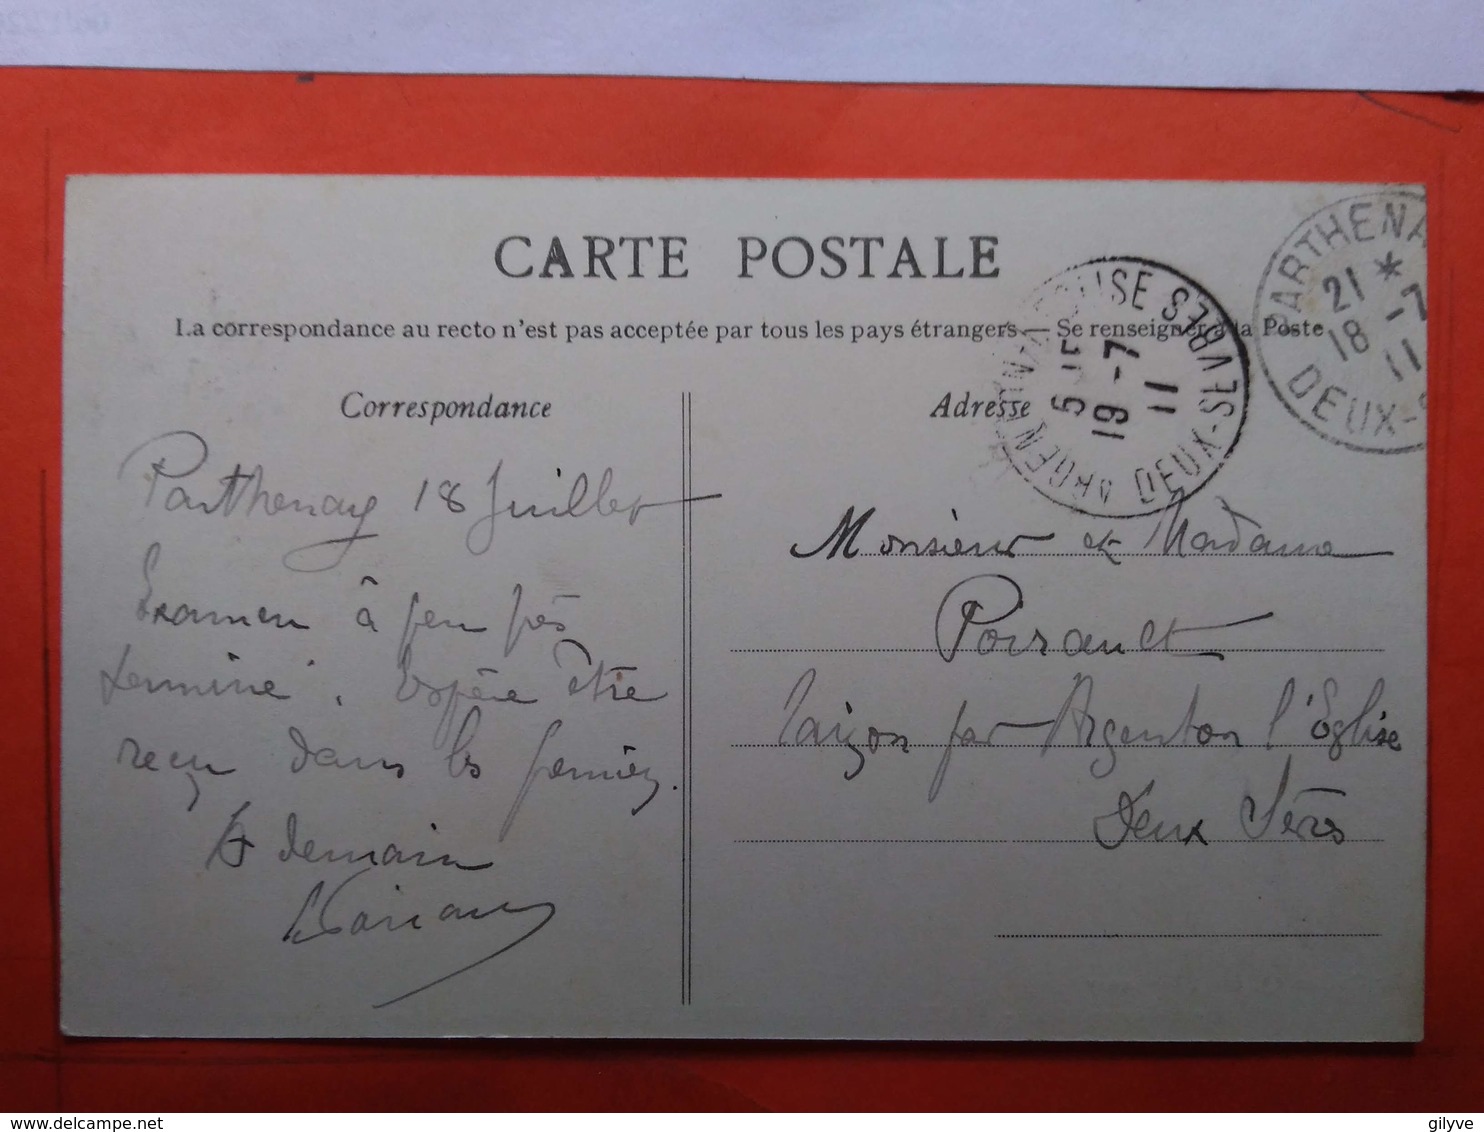 CARTE POSTALE
La correspondance au recto n'est pas acceptée par tous les pays étrangers. — Se renseigner à la Poste
Correspondance
Parthenay 18 Juillet
Examen à peu près
terminé. Espère être
reçu dans les premiers.
A demain
Adresse
Monsieur et Madame
Poirault
par Argenton l'Eglise
Deux Sèvres
5
19 -7
11
DEUX-SEVRES
PARTHENA
21 * -7
18 11
DEUX-S
delcampe.net
gilyve